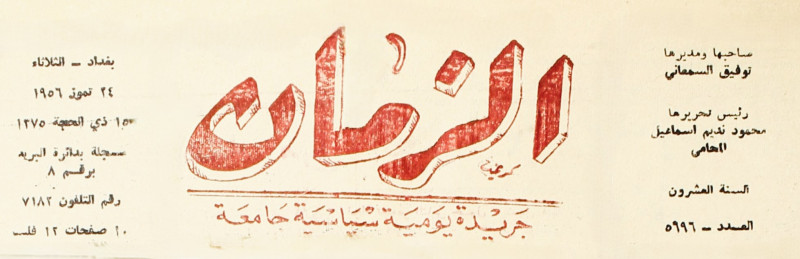 صاحبها ومديرها
توفيق السمعاني
رئيس تحريرها
محمود نديم اسماعيل
المحامي
السنة العشرون
العدد – ٥٩٩٦
الزمان
جريدة يومية سياسية جامعة
بغداد – الثلاثاء
٢٤ تموز ١٩٥٦
١٥ ذي الحجة ١٣٧٥
مسجلة بدائرة البريد
برقم ٨
رقم التلفون ٧١٨٢
١٠ صفحات ١٢ فلسا